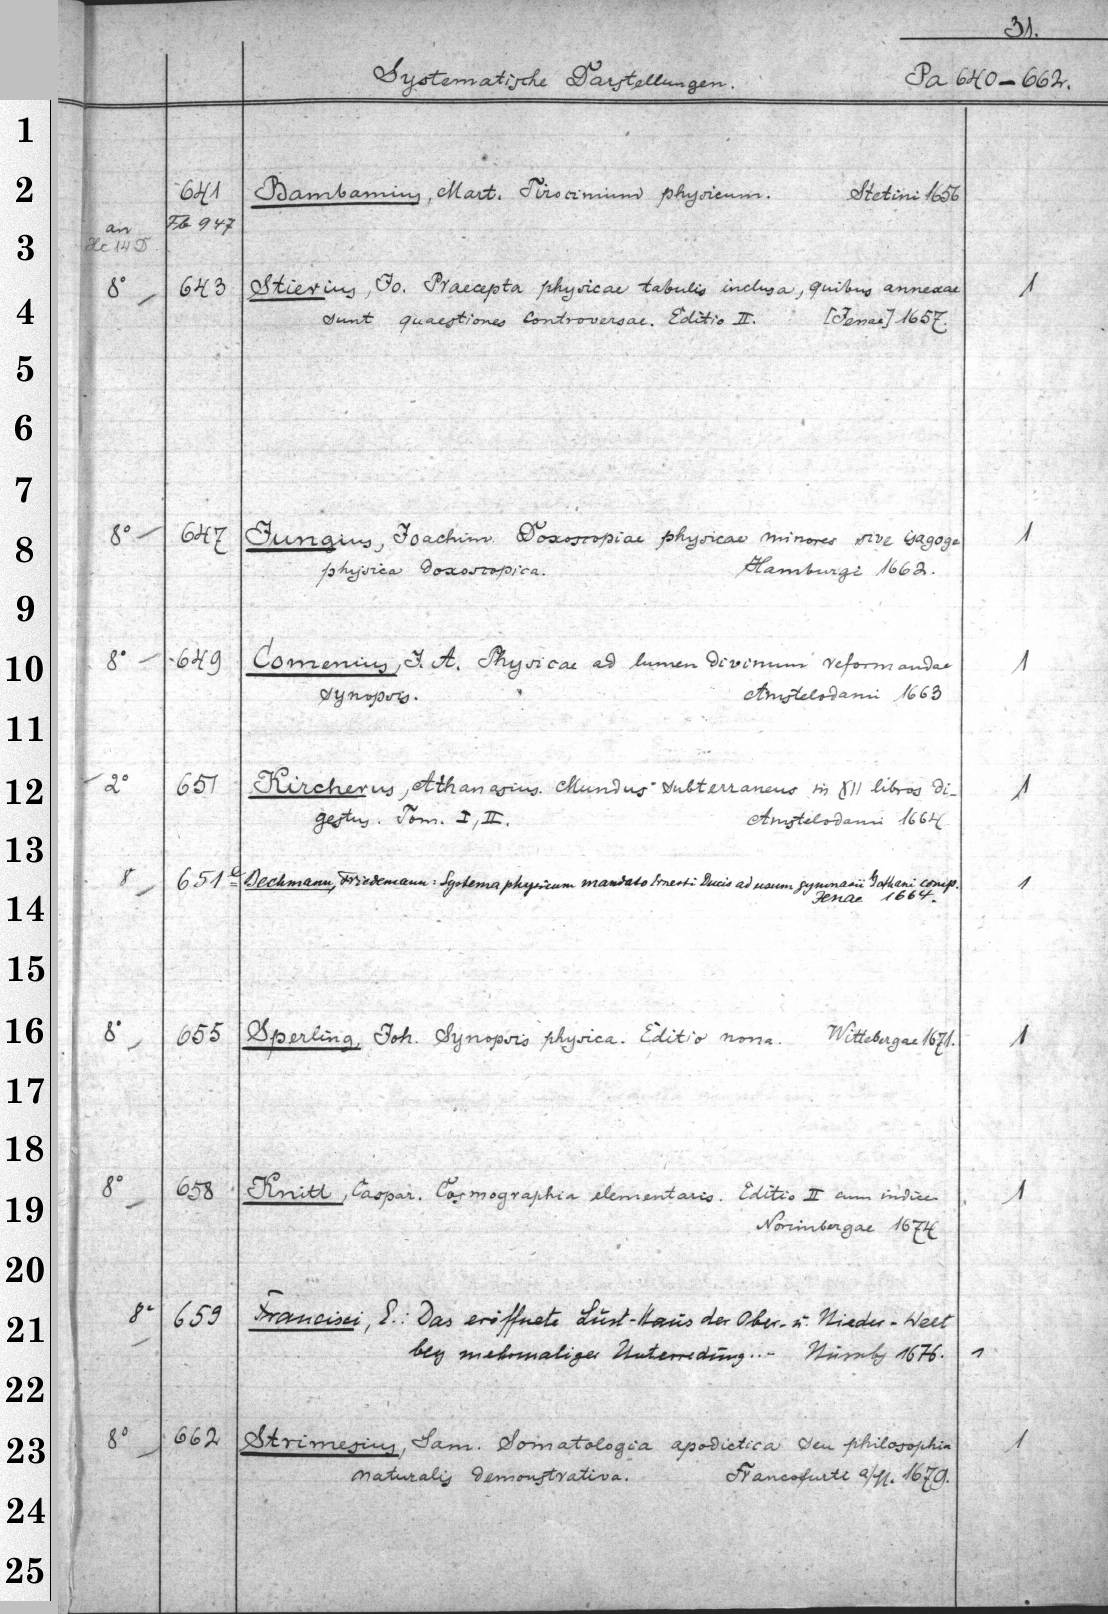 31.
Systematische Darstellungen. Pa 640-662.
1
2 641 Bambamius, Mart. Tirocinium physicum. Stetini 1656
an Fb 947
3
8° 643 Stierius, Jo. Praecepta physicae tabulis inclusa, quibus annexae 1
4 sunt quaestiones controversae. Editio II. [Jenae] 1657.
5
6
7
8 8° 647 Jungius, Joachim. Doxoscopiae physicae minores sive isagoge 1
physica doxoscopica. Hamburgi 1662.
9
10 8° 649 Comenius, J. A. Physicae ad lumen divinum reformandae 1
synopsis. Amstelodami 1663
11
12 2° 651 Kircherus, Athanasius. Mundus subterraneus in XII libros di- 1
gestus. Tom. I, II. Amstelodami 1664
13
8 651 b Bechmann, Friedemann: Systema physicum mandato Ernesti Ducis ad usum gymnasii Gothani comp. 1
14 Jenae 1664.
15
16 8° 655 Sperling, Joh. Synopsis physica. Editio nona. Wittebergae 1671. 1
17
18
19 8° 658 Knitl, Caspar. Cosmographia elementaris. Editio II cum indice 1
Norimbergae 1674
20
21 8° 659 Francisci, E.: Das eröffnete Lust-Haus der Ober- u. Nieder-Welt
bey mehrmaliger Unterredung... Nürnbg 1676. 1
22
23 8° 662 Strimesius, Sam. Somatologia apodictica seu philosophia 1
naturalis demonstrativa. Francofurti a/M. 1679.
24
25